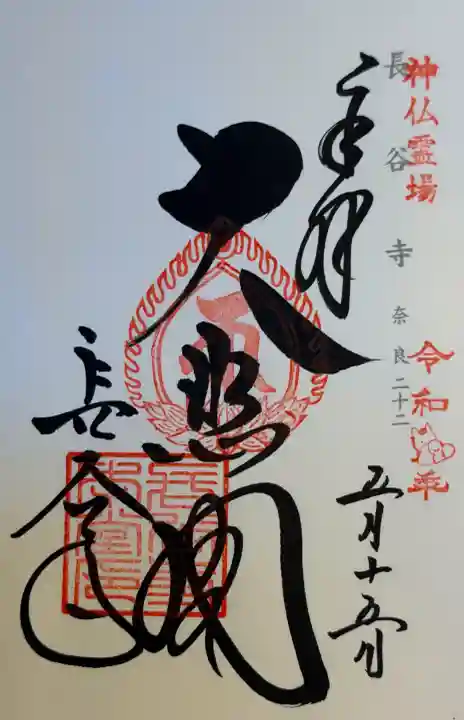 神仏霊場
令和 年
長谷寺 奈良二十二
奉拝
五月十五日
大悲閣
長谷寺